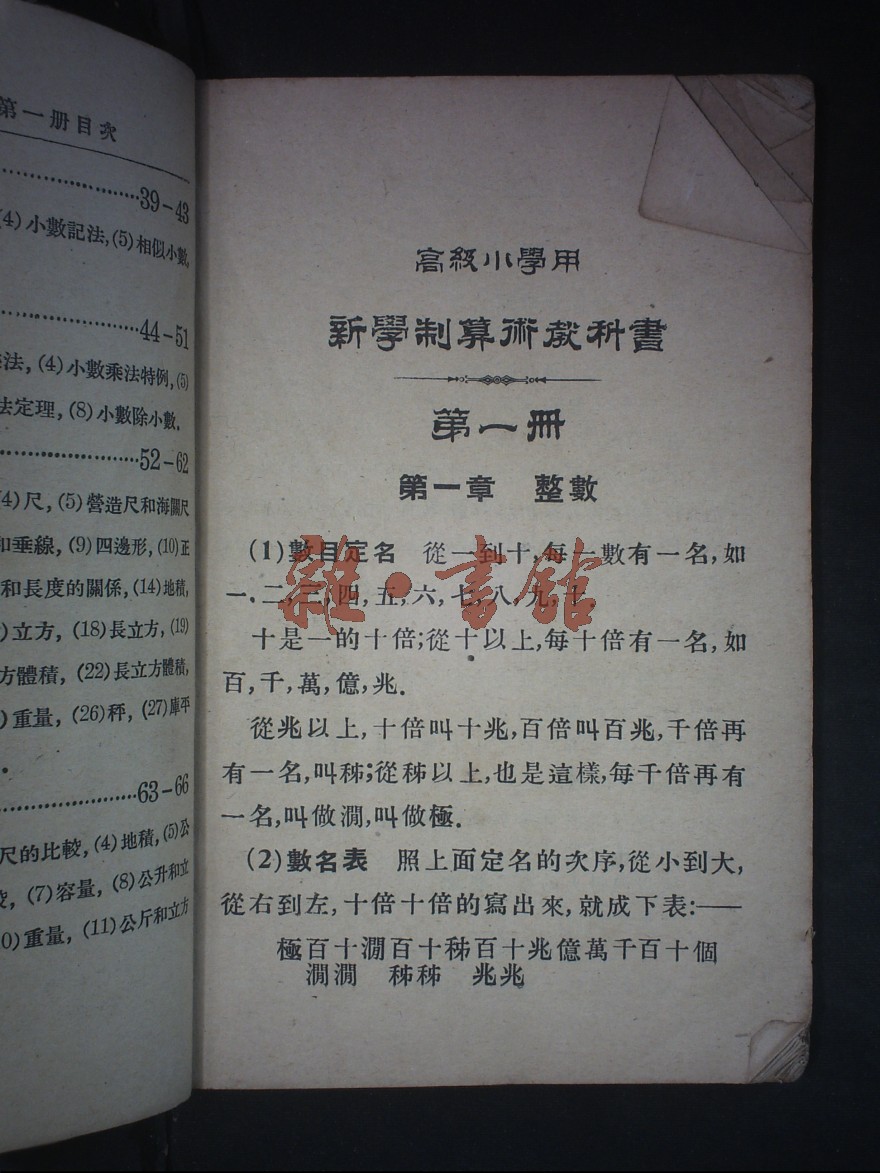 第一册目次
39-43
(4)小數記法,(5)相似小數,
44-51
法,(4)小數乘法特例,(5)
法定理,(8)小數除小數.
52-62
(4)尺,(5)營造尺和海關尺
和垂線,(9)四邊形,(10)正
和長度的關係,(14)地積,
)立方,(18)長立方,(19)
方體積,(22)長立方體積,
)重量,(26)秤,(27)庫平
63-66
尺的比較,(4)地積,(5)公
(7)容量,(8)公升和立
0)重量,(11)公斤和立方
高級小學用
新學制算術教科書
第一冊
第一章 整數
(1)數目定名 從一到十,每一數有一名,如
一,二,三,四,五,六,七,八,九,十.
十是一的十倍;從十以上,每十倍有一名,如
百,千,萬,億,兆.
從兆以上,十倍叫十兆,百倍叫百兆,千倍再
有一名,叫秭;從秭以上,也是這樣,每千倍再有
一名,叫做澗,叫做極.
(2)數名表 照上面定名的次序,從小到大,
從右到左,十倍十倍的寫出來,就成下表:——
極百十澗百十秭百十兆億萬千百十個
澗澗 秭秭 兆兆
雜·書館